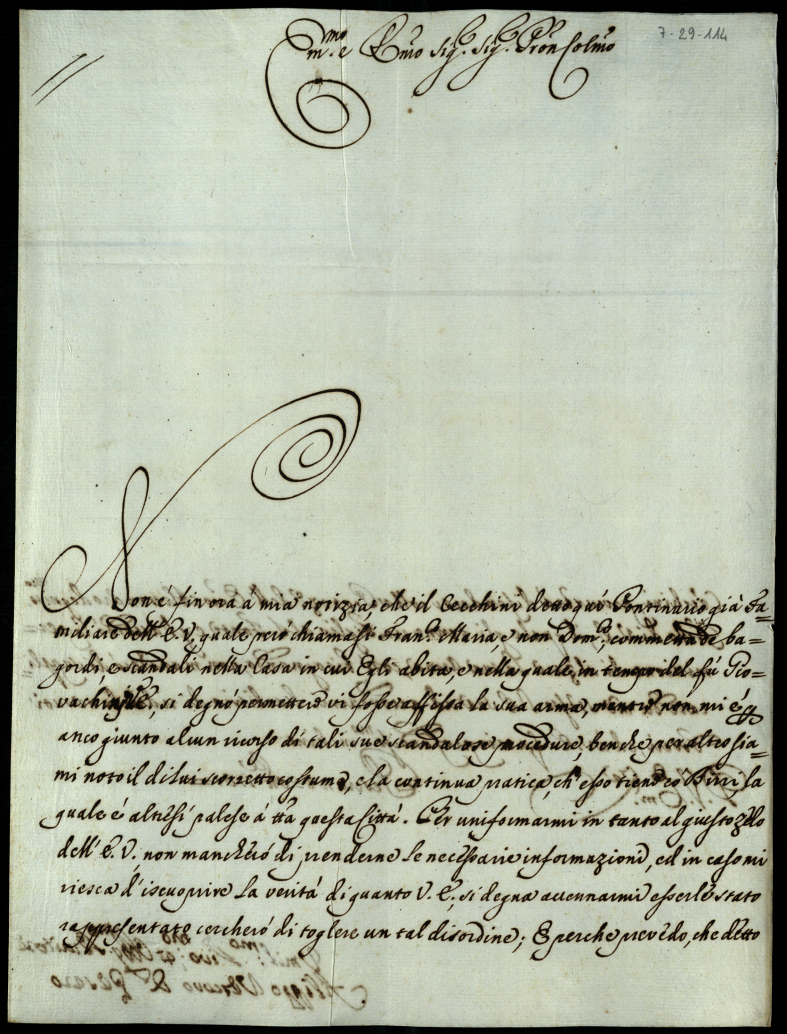 7-29-114
Em.mo e Rmo Sig.r Sig.r Pron Colmo
Non é fin ora á mia notizia, che il Cecchini detto quí Pontinario già Fa=
miliare dell' E. V., quale però chiamasi Fran.o Maria, e non Dom.o, commetta de ba=
gordi, e scandali nella Casa in cui Egli abita, e nella quale in tempo del fú Gio=
vachini, si degnó permettere vi fosse affissa la sua arma, mentre non mi é
anco giunto alcun ricorso di tali sue scandalose procedure, benche per altro sia=
mi noto il di lui scorretto costume, e la continua pratica, ch' esso tiene co Birri, la
quale é altresí palese á tta questa Cittá. Per uniformarmi in tanto al giusto zelo
dell' E. V. non mancheró di prenderne le necessarie informazioni, ed in caso mi
riesca d'iscuoprire la veritá di quanto V. E. si degna accennarmi esserle stato
rappresentato cercheró di togliere un tal disordine; E perche prevedo, che detto